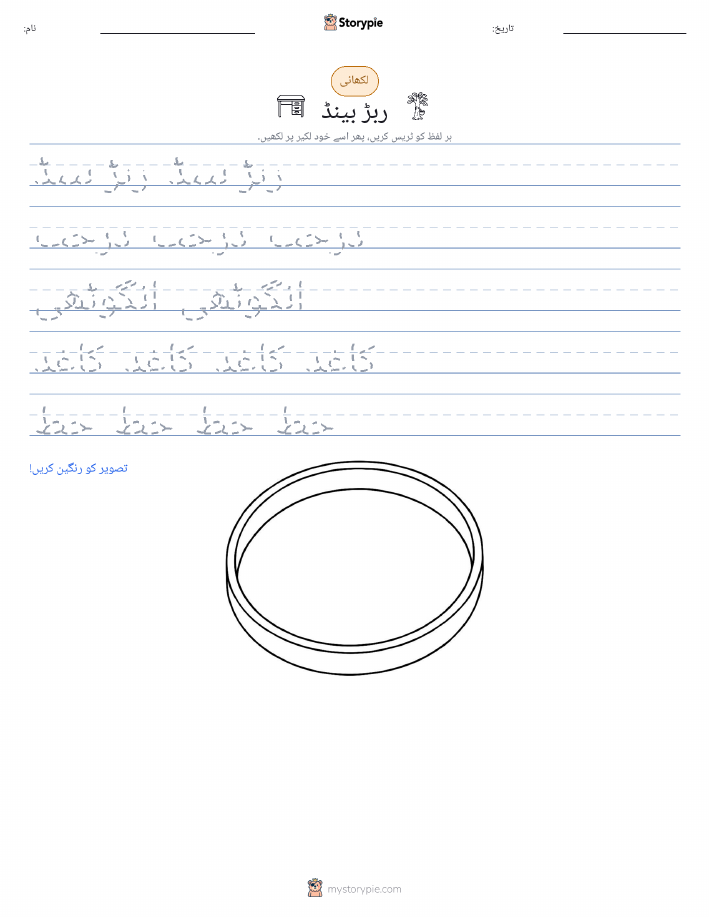 نام:
Storypie
تاریخ:
لکھائی
ربڑ بینڈ
ہر لفظ کو ٹریس کریں، پھر اسے خود لکیر پر لکھیں۔
ربڑ بینڈ ربڑ بینڈ
انگوٹھی انگوٹھی
کاغذ کاغذ کاغذ کاغذ
تصویر کو رنگین کریں!
mystorypie.com